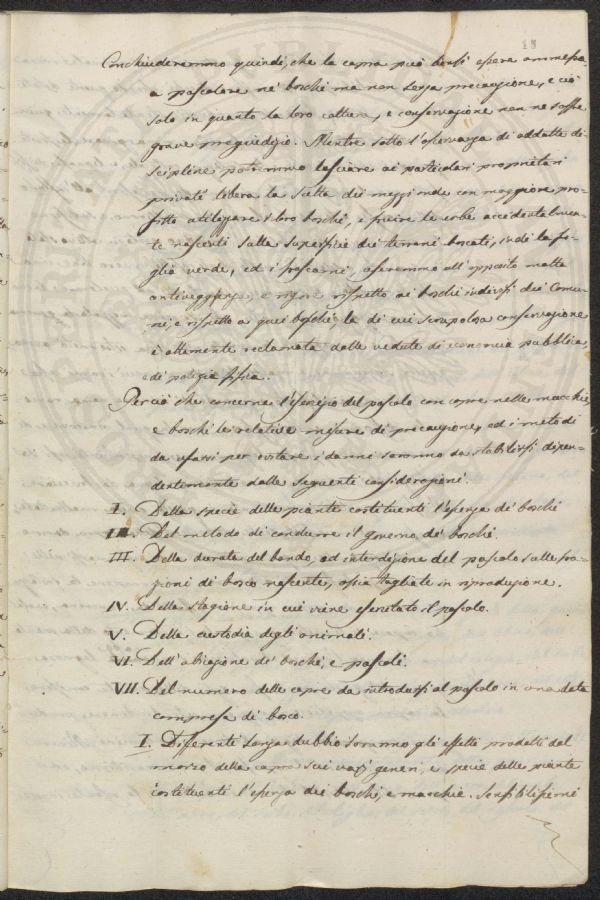 18
Conchiuderemmo quindi, che la capra può bensì essere ammessa
a pascolare ne' boschi ma non senza precauzione, e ciò
solo in quanto la loro coltura, e conservazione non ne soffre
grave pregiudizio. Mentre sotto l'osservanza di addatte di-
scipline potremmo lasciare ai particolari proprietari
privati libera la scelta dei mezzi onde con maggiore pro-
fitto utilizzare i loro boschi, e fruire le erbe accidentalmen-
te nascenti sulla superficie dei terreni boscati, indi la fo-
glia verde, ed i frascami, useremmo all'opposito molta
antiveggenza, e rigore rispetto ai boschi indivisi dei Comu-
ni, e rispetto a quei boschi, la di cui scrupolosa conservazione
è altamente reclamata dalle vedute di economia pubblica,
e di polizia fisica.
Per ciò che concerne l'esercizio del pascolo con capre nelle macchie,
e boschi le relative misure di precauzione, ed i metodi
da usarsi per evitare i danni saranno da stabilirsi dipen-
dentemente dalle seguenti considerazioni.
I. Della specie delle piante costituenti l'essenza de' boschi
II. Del metodo di condurre il governo de' boschi.
III. Della durata del bando, ed interdizione del pascolo sulle fra-
zioni di bosco nascente, ossia tagliate in riproduzione.
IV. Della stagione in cui viene esercitato il pascolo.
V. Della custodia degli animali.
VI. Dell'ubicazione de' boschi, e pascoli.
VII. Del numero delle capre da introdursi al pascolo in una data
compresa di bosco.
I. Differenti senza dubbio saranno gli effetti prodotti dal
morso della capra sui varj generi, e specie delle piante
costituenti l'essenza dei boschi, e macchie. Sensibilissimi